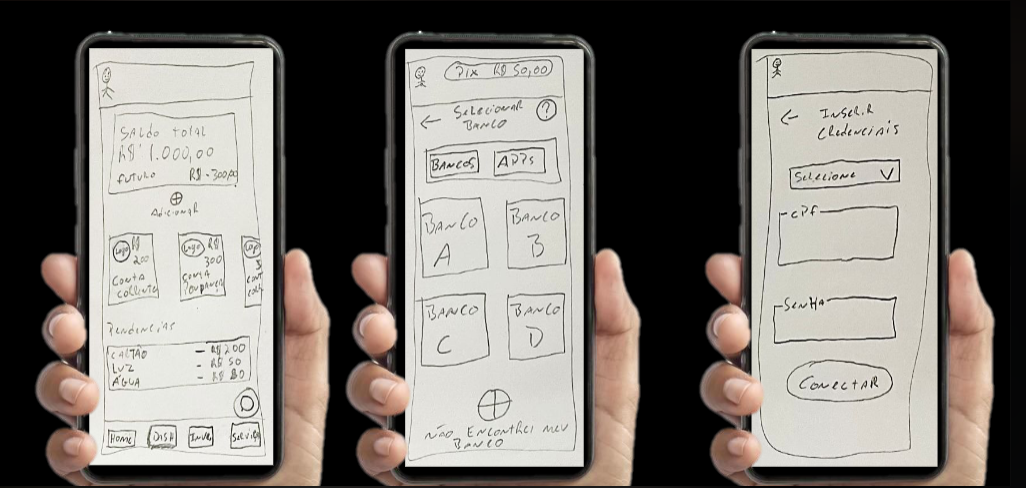 SALDO TOTAL
R$ 1.000,00
FUTURO R$ -300,00
Adicionar
Logo R$
200
CONTA
CORRENTE
Logo R$
300
CONTA
POUPANÇA
Pendencias
CARTÃO - R$ 200
LUZ - R$ 50
ÁGUA - R$ 80
HOME
DASH
INVES
SERVIÇO
PIX R$ 50,00
← SELECIONAR
BANCO
?
BANCOS
APPS
BANCO
A
BANCO
B
BANCO
C
BANCO
D
NÃO ENCONTREI MEU
BANCO
← INSERIR
CREDENCIAIS
Selecione V
CPF
SENHA
CONECTAR